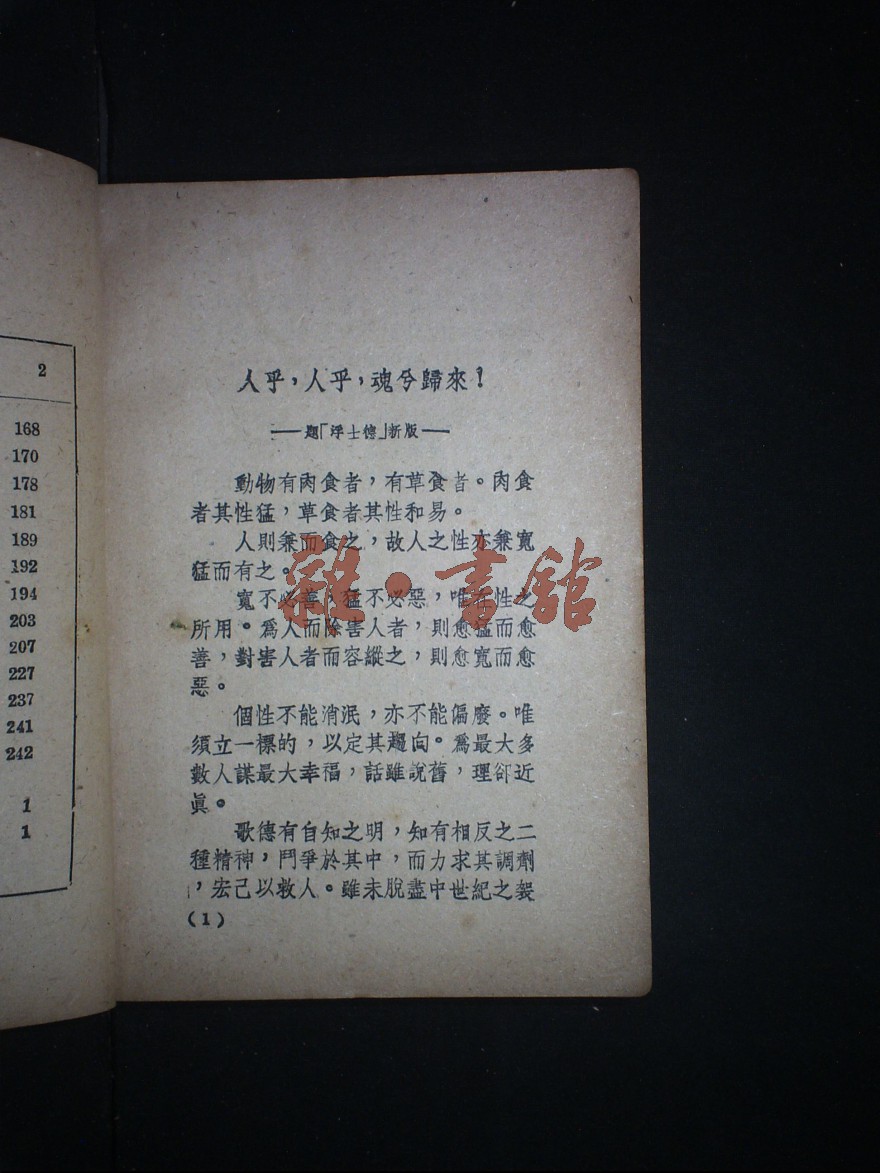 2
168
170
178
181
189
192
194
203
207
227
237
241
242
1
1
人乎，人乎，魂兮歸來！
——題「浮士德」新版——
動物有肉食者，有草食者。肉食
者其性猛，草食者其性和易。
人則兼而食之，故人之性亦兼寬
猛而有之。
寬不必善，猛不必惡，唯在性之
所用。爲人而除害人者，則愈猛而愈
善，對害人者而容縱之，則愈寬而愈
惡。
個性不能消泯，亦不能偏廢。唯
須立一標的，以定其趨向。爲最大多
數人謀最大幸福，話雖說舊，理卻近
眞。
歌德有自知之明，知有相反之二
種精神，鬥爭於其中，而力求其調劑
，宏己以救人。雖未脫盡中世紀之袈
(1)
雜·書館